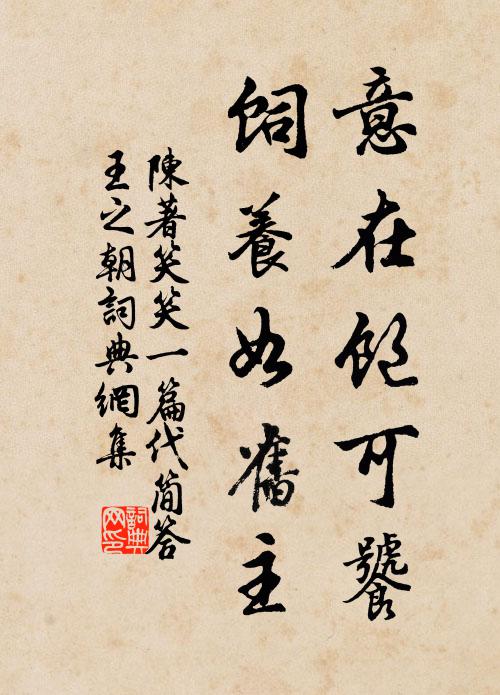 意在飽可饕
飼養如舊主
陳著笑笑一篇代簡答
王之朝詞典網集
詞典
网印